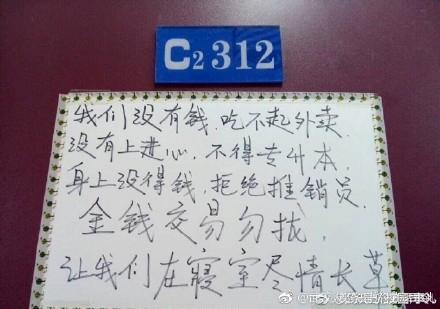 C2 312
我们没有钱,吃不起外卖,
没有上进心,不得专升本,
身上没得钱,拒绝推销员,
金钱交易勿扰,
让我们在寝室尽情长草